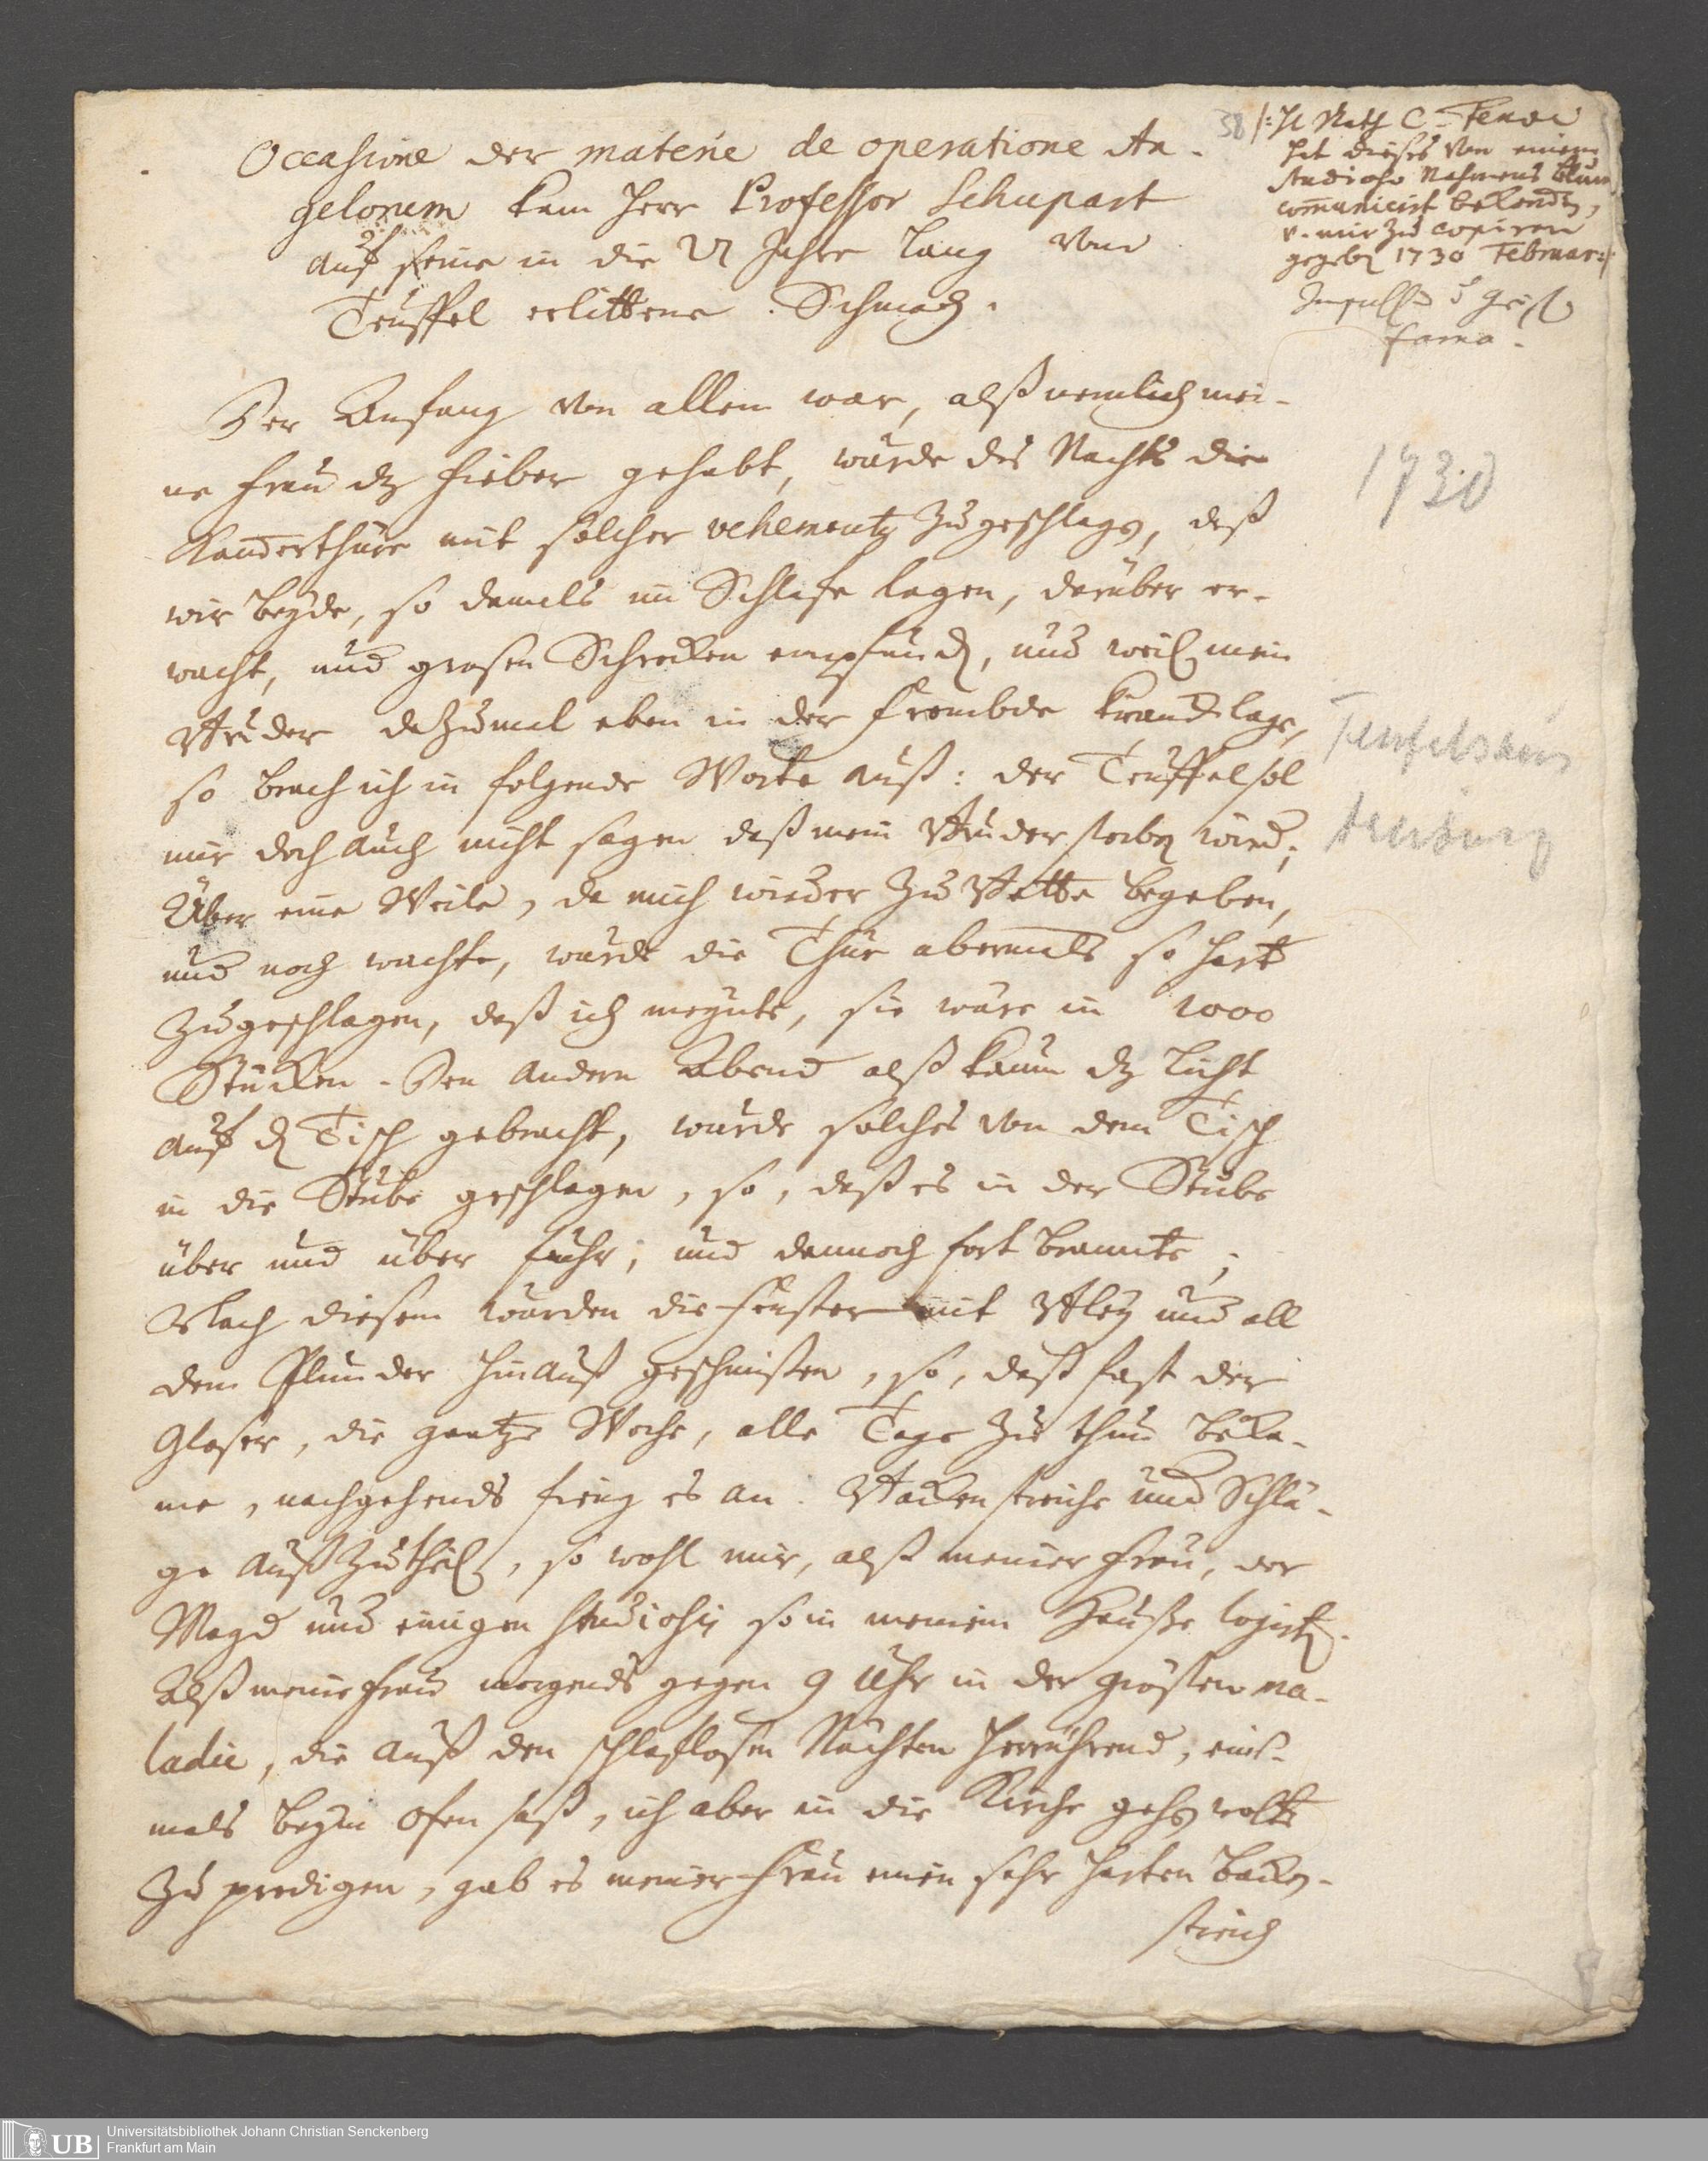 Occasione der materie de operatione An-
gelorum kam Herr Professor Schupart
auf seine in die Jahre lang vom
Teuffel erlittene Schmach.
38
hat dieses von einem
studioso Nahmens
communicirt bekommen,
v. mir zu copiren
gegeben 1730 Februar:/:
fama.
Der Anfang von allem war, alß nemlich mei-
ne Frau dz Fieber gehabt, wurde des Nachts die
Kam̄erthüre mit solcher vehementz zugeschlagen, daß
wir beyde, so damals im Schlafe lagen, darüber er-
wacht, und grosen Schrecken empfunden, und weil mein
Bruder dazumal eben in der Frembde kranck lage,
so brach ich in folgende Worte auß: der Teuffel sol
mir doch auch nicht sagen daß mein Bruder sterben wird;
Über eine Weile, da mich wieder zu Bette begeben,
und noch wachte, wurde die Thür abermals so hart
zugeschlagen, daß ich meynte, sie wäre in 1000
Stücken. Den andern Abend alß kaum dz Licht
auf den Tisch gebracht, wurde solches von dem Tisch
in die Stube geschlagen, so, daß es in der Stube
über und über fuhr, und dennoch fort brannte;
Nach diesem wurden die Fenster mit Bley und all
dem Plunder hinauß geschmissen, so, daß fast der
Glaser, die gantze Woche, alle Tage zu thun beka-
me, nachgehends fieng es an Backenstreiche und Schlä-
ge außzutheilen, so wohl mir, alß meiner Frau, der
Magd und einigen studiosis so in meinem Hausse logirten.
Alß meine Frau morgends gegen 9 Uhr in der grösten ma-
ladie, die auß den schlaflosen Nächten herrührend, eins-
mals beym Ofen saß, ich aber in die Kirche gehen wolte
zu predigen, gab es meiner Frau einen sehr harten Backen-
streich
1730
UB
Universitätsbibliothek Johann Christian Senckenberg
Frankfurt am Main